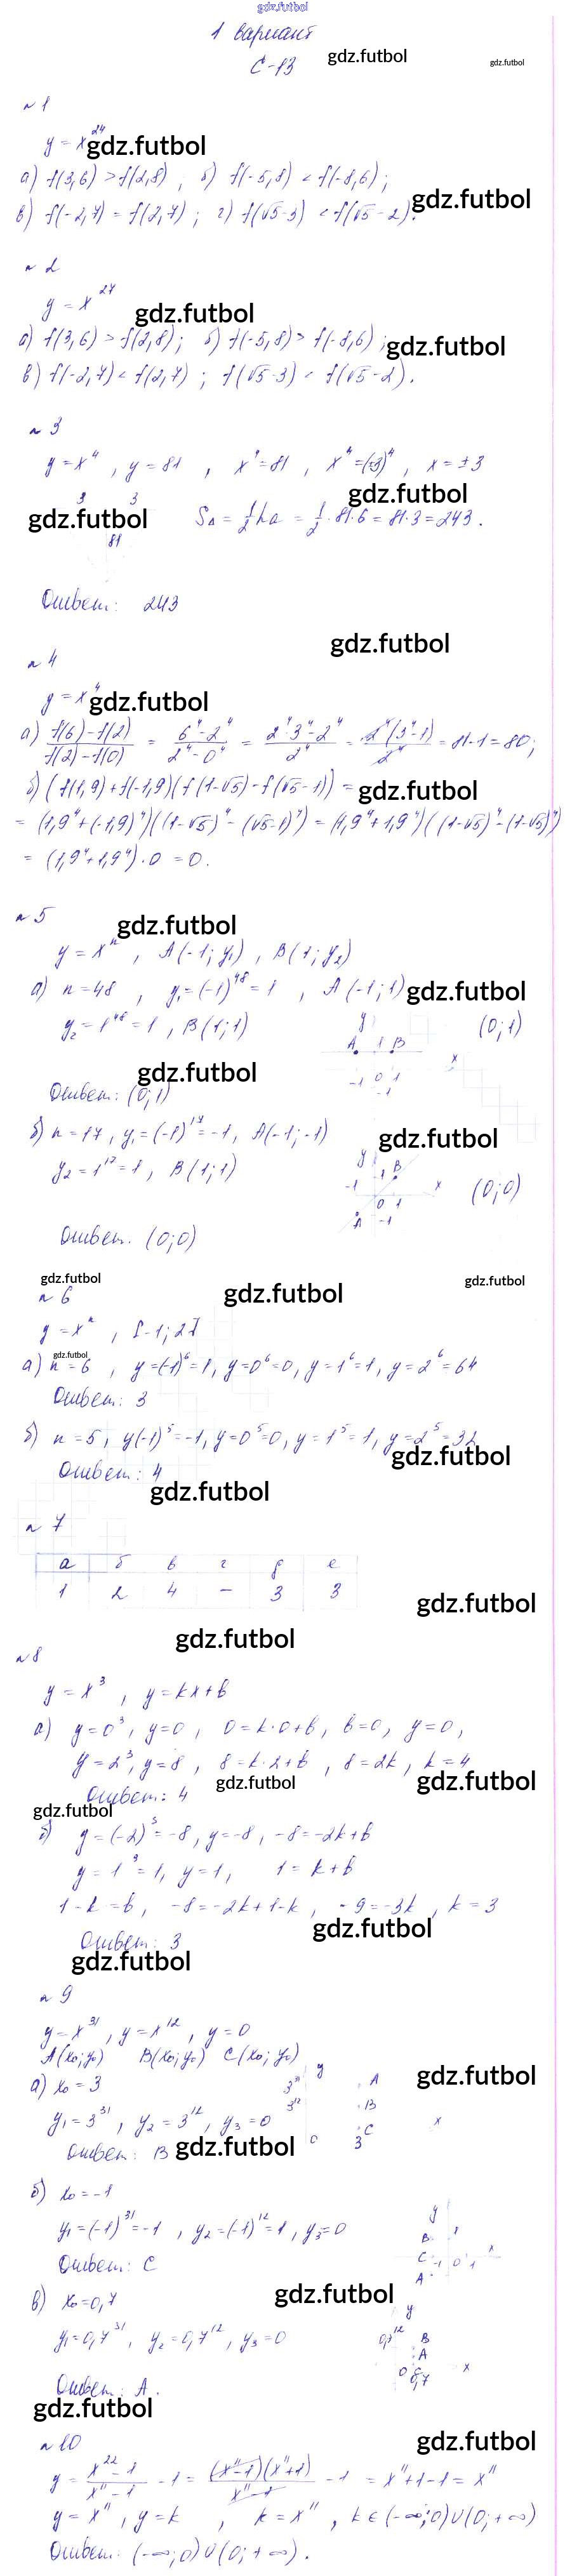 gdz.futbol
1 вариант
С-13
gdz.futbol
gdz.futbol
n 1
y = x^24
gdz.futbol
а) f(3,6) > f(2,8) ; б) f(-5,8) < f(-8,6) ;
gdz.futbol
в) f(-2,7) = f(2,7) ; г) f(√5-3) < f(√5-2).
n 2
y = x^27
gdz.futbol
а) f(3,6) > f(2,8) ; б) f(-5,8) > f(-8,6) ;
gdz.futbol
в) f(-2,7) < f(2,7) ; f(√5-3) < f(√5-2).
n 3
y = x^4 , y = 81 , x^4 = 81 , x^4 = (±3)^4 , x = ±3
gdz.futbol
3 3
gdz.futbol
81
S△ = 1/2 ha = 1/2 · 81·6 = 81·3 = 243.
Ответ: 243
gdz.futbol
n 4
y = x^4
gdz.futbol
а) (f(6)-f(2))/(f(2)-f(0)) = (6^4-2^4)/(2^4-0^4) = (2^4·3^4-2^4)/2^4 = 2^4(3^4-1)/2^4 = 81-1 = 80;
б) (f(1,9)+f(-1,9)(f(1-√5)-f(√5-1)) =
gdz.futbol
= (1,9^4+(-1,9)^4)((1-√5)^4-(√5-1)^4) = (1,9^4+1,9^4)((1-√5)^4-(1-√5)^4)
= (1,9^4+1,9^4)·0 = 0.
n 5
gdz.futbol
y = x^n , A(-1; y1) , B(1; y2)
а) n = 48 , y1 = (-1)^48 = 1 , A(-1; 1)
gdz.futbol
y2 = 1^48 = 1 , B(1; 1)
y
A 1 B
x
-1 0 1
-1
(0; 1)
gdz.futbol
Ответ: (0; 1)
б) n = 17 , y1 = (-1)^17 = -1, A(-1; -1)
gdz.futbol
y2 = 1^17 = 1 , B(1; 1)
y
1 B
-1 x
0 1
A -1
(0; 0)
Ответ. (0; 0)
gdz.futbol
gdz.futbol
gdz.futbol
n 6
y = x^n , [-1; 2]
gdz.futbol
а) n = 6 , y = (-1)^6 = 1, y = 0^6 = 0, y = 1^6 = 1, y = 2^6 = 64
Ответ: 3
б) n = 5 , y(-1)^5 = -1, y = 0^5 = 0, y = 1^5 = 1, y = 2^5 = 32
gdz.futbol
Ответ: 4
gdz.futbol
n 7
а б в г д е
1 2 4 - 3 3
gdz.futbol
gdz.futbol
n 8
y = x^3 , y = kx+b
а) y = 0^3 , y = 0 , 0 = k·0+b , b = 0, y = 0 ,
y = 2^3, y = 8 , 8 = k·2+b , 8 = 2k, k = 4
gdz.futbol
gdz.futbol
Ответ: 4
gdz.futbol
б) y = (-2)^3 = -8, y = -8, -8 = -2k+b
y = 1^3 = 1, y = 1, 1 = k+b
1-k = b, -8 = -2k+1-k, -9 = -3k, k = 3
gdz.futbol
Ответ: 3
gdz.futbol
n 9
y = x^31 , y = x^12 , y = 0
A(x0; y0) B(x0; y0) C(x0; y0)
gdz.futbol
а) x0 = 3
y1 = 3^31 , y2 = 3^12 , y3 = 0
y
3^31 A
3^12 B
C
0 3 x
Ответ: B
gdz.futbol
б) x0 = -1
y1 = (-1)^31 = -1 , y2 = (-1)^12 = 1 , y3 = 0
y
B 1
C -1 0 1 x
A
Ответ: C
gdz.futbol
в) x0 = 0,7
y1 = 0,7^31 y2 = 0,7^12 , y3 = 0
y
0,7^12 B
A
0 C x
0,7
Ответ: A.
gdz.futbol
gdz.futbol
n 10
y = (x^22-1)/(x^11-1) - 1 = (x^11-1)(x^11+1)/(x^11-1) - 1 = x^11+1-1 = x^11
y = x^11 , y = k , k = x^11 , k ∈ (-∞; 0)∪(0; +∞)
Ответ: (-∞; 0)∪(0; +∞).